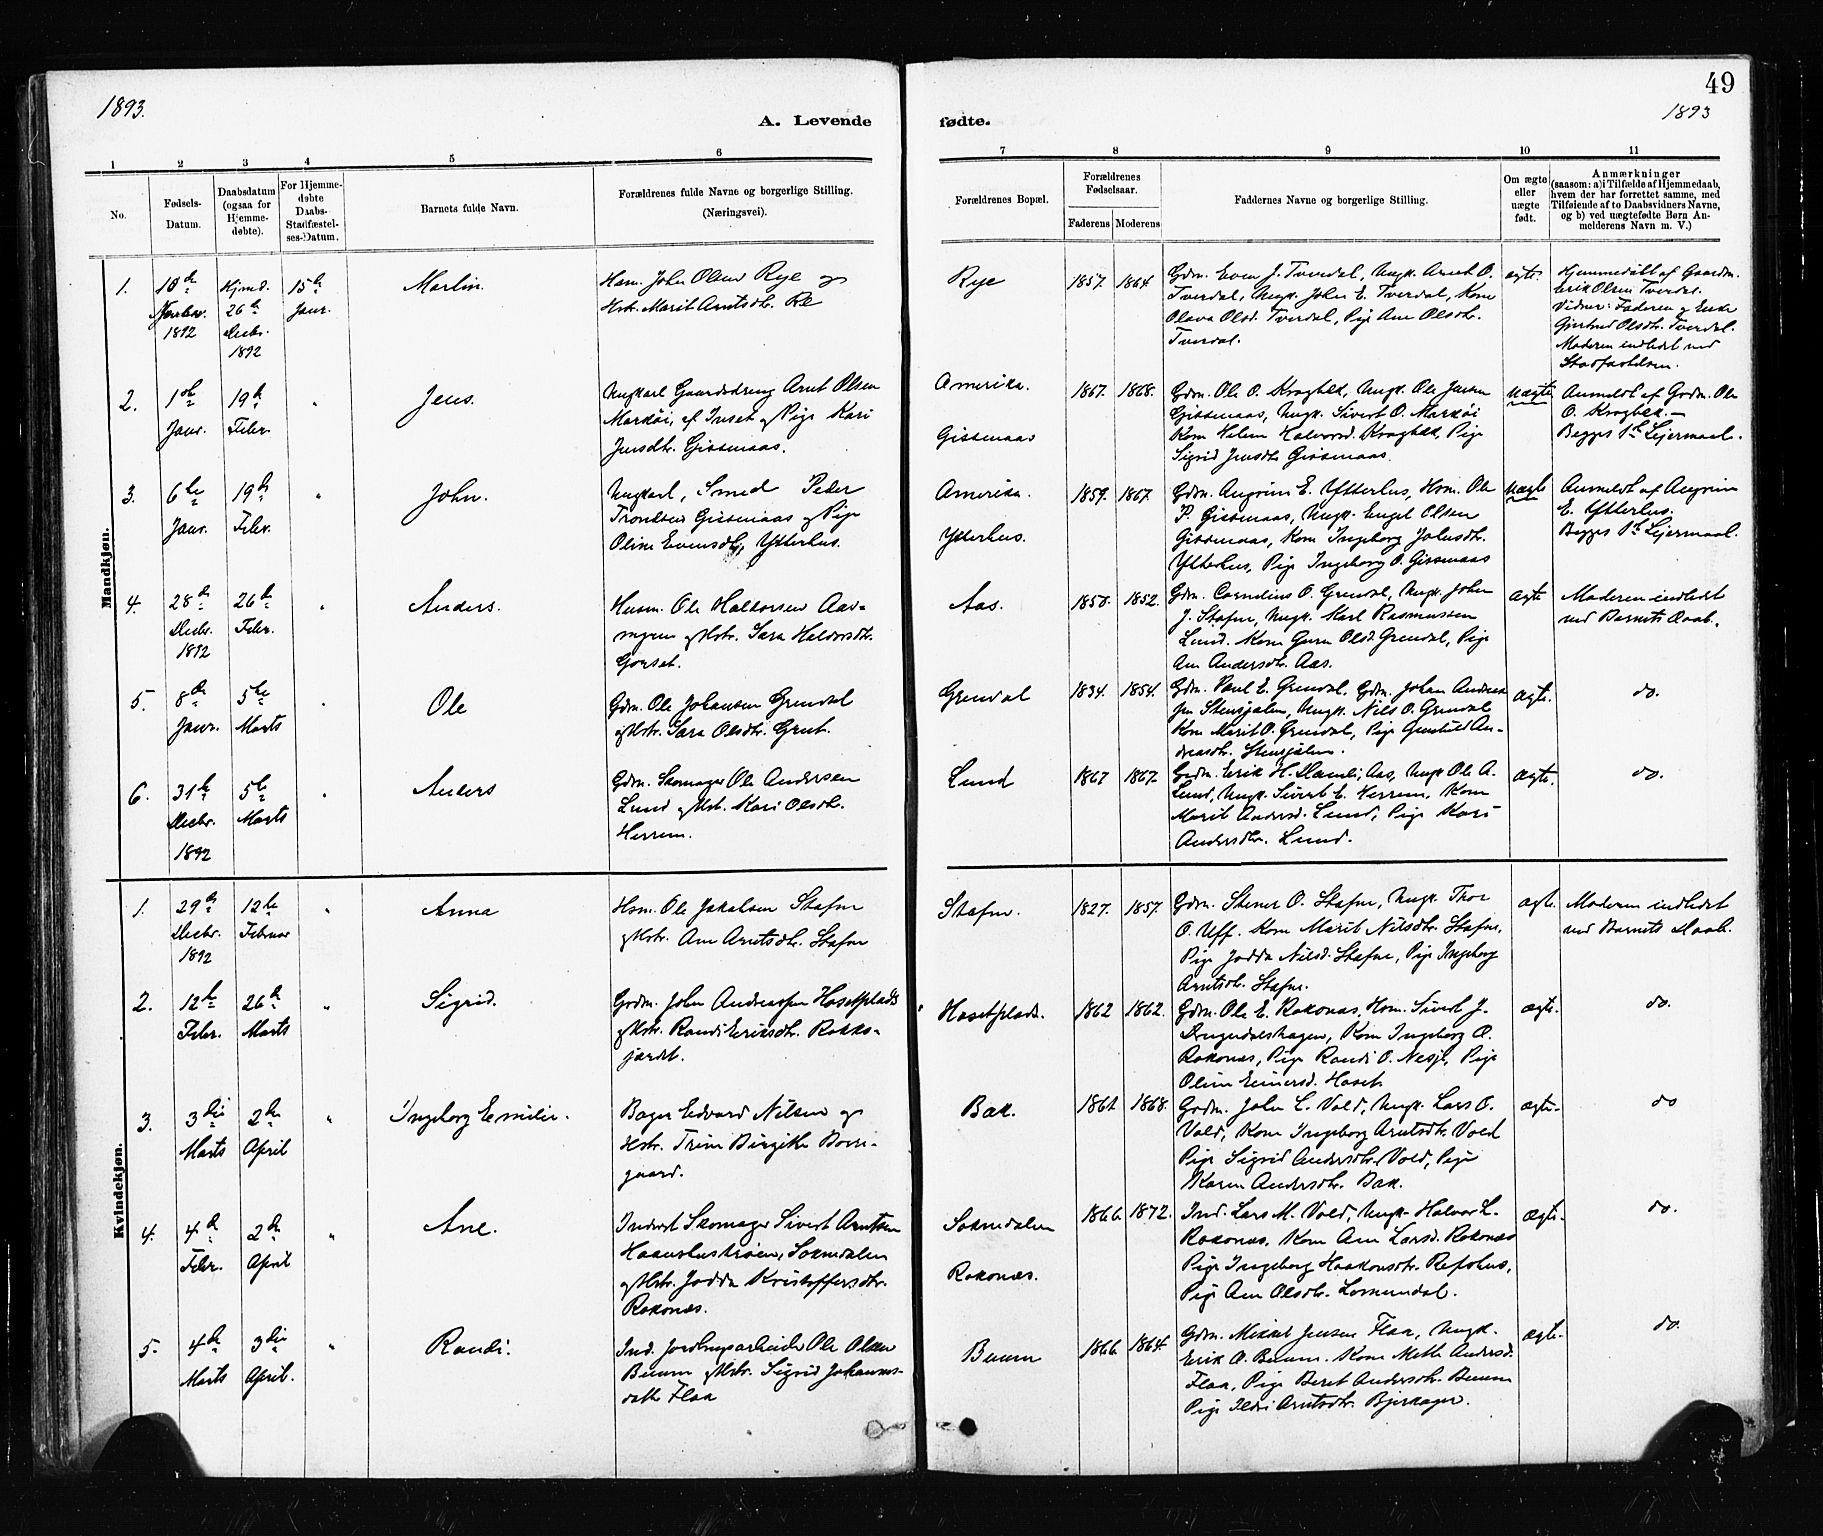 1893.
A. Levende
fødte.
1893
49
1
2
3
4
5
6
7
8
9
10
11
No.
Fødsels-
Datum.
Daabsdatum
(ogsaa for
Hjemme-
døbte).
For Hjemme-
døbte
Daabs-
Stadfæstel-
ses-Datum.
Barnets fulde Navn.
Forældrenes fulde Navne og borgerlige Stilling.
(Næringsvei).
Forældrenes Bopæl.
Forældrenes
Fødselsaar.
Faderens
Moderens
Faddernes Navne og borgerlige Stilling.
Om ægte
eller
uægte
født.
Anmærkninger
(saasom: a) i Tilfælde af Hjemmedaab,
hvem der har forrettet samme, med
Tilføiende af to Daabsvidners Navne,
og b) ved uægtefødte Børn An-
melderens Navn m. V.)
Mandkjøn.
1.
1892
Hjmd.
26de
Decbr.
1892
15de
Janr.
Martin.
Hsm. John Olsen Rye og
Hstr. Marit Arntsdtr.
Rye
1857.
1864
Gdm. Even J. Tverdal, Ungk. Arnt O.
Tverdal, Ungk. John E. Tverdal, Kone
Olava Olsd. Tverdal, Pige Ane Olsdtr.
Tverdal.
ægte
Hjemmedøbt af Gaardm.
Erik Olsen Tverdal.
Vidner: Faderen og Enke
Gjertrud Olsdtr. Tverdal.
Moderen indledet ved
Stadfæstelsen.
2.
1ste
Janr.
19de
Febr.
"
Jens.
Ungkarl Gaardsdreng Arnt Olsen
Markøi, af Inset og Pige Kari
Jensdtr. Gissmaas.
Amerika.
Gissmaas
1867.
1868.
Gdm. Ole O. Kragbæk, Ungk. Ole Jensen
Gissmaas, Ungk. Sivert O. Markøi
Kone Helene Halvorsd. Kragbæk, Pige
Sigrid Jensdtr. Gissmaas.
uægte
Anmeldt af Gdm. Ole
O. Kragbæk.—
Begges 1ste Lejermaal.
3.
6te
Janr.
19de
Febr.
"
John.
Ungkarl, Smed Peder
Trondsen Gissmaas og Pige
Oline Evensdtr. Ytterhus.
Amerika.
Ytterhus.
1859.
1867.
Gdm. Angrim E. Ytterhus, Hsm. Ole
P. Gissmaas, Ungk. Engel Olsen
Gissmaas, Kone Ingeborg Johnsdtr.
Ytterhus, Pige Ingeborg O. Gissmaas
uægte
Anmeldt af Angrim
E. Ytterhus.
Begges 1ste Lejermaal.
4.
28de
Decbr.
1892
26de
Febr.
"
Anders.
Husm. Ole Halvorsen Aas-
og Hstr. Sara Haldorsdtr.
Gorset.
Aas.
1850.
1852.
Gdm. Cornelius O. Grendal, Ungk. John
J. Stafne, Ungk. Karl Rasmussen
Lund. Kone Guru Olsd. Grendal, Pige
Ane Andersdtr. Aas.
ægte
Moderen indledet
ved Barnets Daab.
5.
8de
Janr.
5te
Marts
"
Ole
Gdm. Ole Johansen Grendal
og Hstr. Sara Olsdtr. Grut.
Grendal
1834.
1854.
Gdm. Paul E. Grendal, Gdm. Johan Andreas-
sen Stensjalen, Ungk. Nils O. Grendal
Kone Marit O. Grendal, Pige Gunhild An-
dreasdtr. Stensjalen.
ægte.
do.
6.
31te
Decbr.
1892
5te
Marts
"
Anders
Gdm. Skomager Ole Andersen
Lund og Hstr. Kari Olsdtr.
Herrem.
Lund
1867
1867.
Gdm. Erik H. Damli, Aas, Ungk. Ole A.
Lund, Ungk. Sivert E. Herrem, Kone
Marit Andersd. Lund, Pige Kari
Andersdtr. Lund.
ægte.
do.
Kvindekjøn.
1.
29de
Decbr.
1892
12te
Februar
"
Anna
Hsm. Ole Jakobsen Stafne
og Hstr. Ane Arntsdtr. Stafne
Stafne.
1827.
1857.
Gdm. Stener O. Stafne, Ungk. Thor
O. Uff. Kone Marit Nilsdtr. Stafne,
Pige Jodda Nilsd. Stafne, Pige Ingeborg
Arntsdtr. Stafne.
ægte.
Moderen indledet
ved Barnets Daab.
2.
12te
Febr.
26de
Marts
"
Sigrid.
Grdm. John Andreassen Hosetplads
og Hstr. Randi Eriksdtr. Rokks-
jærdet.
Hosetplads.
1862
1862.
Gdm. Ole E. Rokonæs, Hsm. Sivert J.
Kone Ingeborg O.
Rokonæs, Pige Randi O. Nesje, Pige
Oline Einersd. Hoset.
ægte.
do.
3.
3die
Marts
2den
April
"
Ingeborg Emilie.
Bager Edvard Nilsen og
Hstr. Trine Birgitte Borre-
gaard.
Bak.
1861
1868.
Grdm. John L. Vold, Ungk. Lars O.
Vold, Kone Ingeborg Arntsdtr. Vold
Pige Sigrid Andersdtr. Vold, Pige
Karen Andersdtr. Bak.
ægte.
do
4.
4de
Febr.
2den
April
"
Ane.
Inderst Skomager Sivert Arntsen
Haanshustrøen, Soknedalen
og Hstr. Jodda Kristoffersdtr.
Rokonæs.
Soknedalen
Rokonæs.
1866.
1872.
Ind. Lars M. Vold, Ungk. Halvor L.
Rokonæs, Kone Ane Larsd. Rokonæs
Pige Ingeborg Haakonsdtr. Refshus,
Pige Ane Olsdtr. Lomundal.
ægte.
do.
5.
4de
Marts
3die
April.
"
Randi.
Ind. Jordbrugsarbeider Ole Olsen
Buum og Hstr. Sigrid Johannes-
datter Flaa
Buum
1866.
1864.
Gdm. Mikkel Jensen Flaa, Ungk.
Erik O. Buum. Kone Meth Andersd.
Flaa, Pige Beret Andersdtr. Buum
Pige Ildri Arntsdtr. Bjerkager.
ægte.
do.